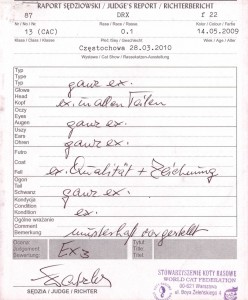 RAPORT SĘDZIOWSKI / JUDGE'S REPORT / RICHTERBERICHT
87 DRX f 22
Nr / No / Nr Rasa / Race / Rasse Kolor / Colour / Farbe
13 (CAC) 0.1 14.05.2009
Klasa / Class / Klasse Płeć / Sex / Geschlecht Wiek / Age / Alter
Częstochowa 28.03.2010
Wystawa / Cat Show / Rassekatzen-Ausstellung
Typ
Type
Typ
ganz ex.
Głowa
Head
Kopf
ex. in allen Teilen
Oczy
Eyes
Augen
ganz ex.
Uszy
Ears
Ohren
ganz ex.
Futro
Coat
Fell
ex. Qualität + Zeichnung
Ogon
Tail
Schwanz
ganz ex.
Kondycja
Condition
Kondition
ex.
Uwagi
Comment
Bemerkung
musterhaft vorgestellt
Ocena
Judgement
Bewertung
Ex 3
Tytuł
Title
Titel
SĘDZIA / JUDGE / RICHTER
STOWARZYSZENIE KOTY RASOWE
WORLD CAT FEDERATION
00-621 Warszawa
ul. Boya Żeleńskiego 4